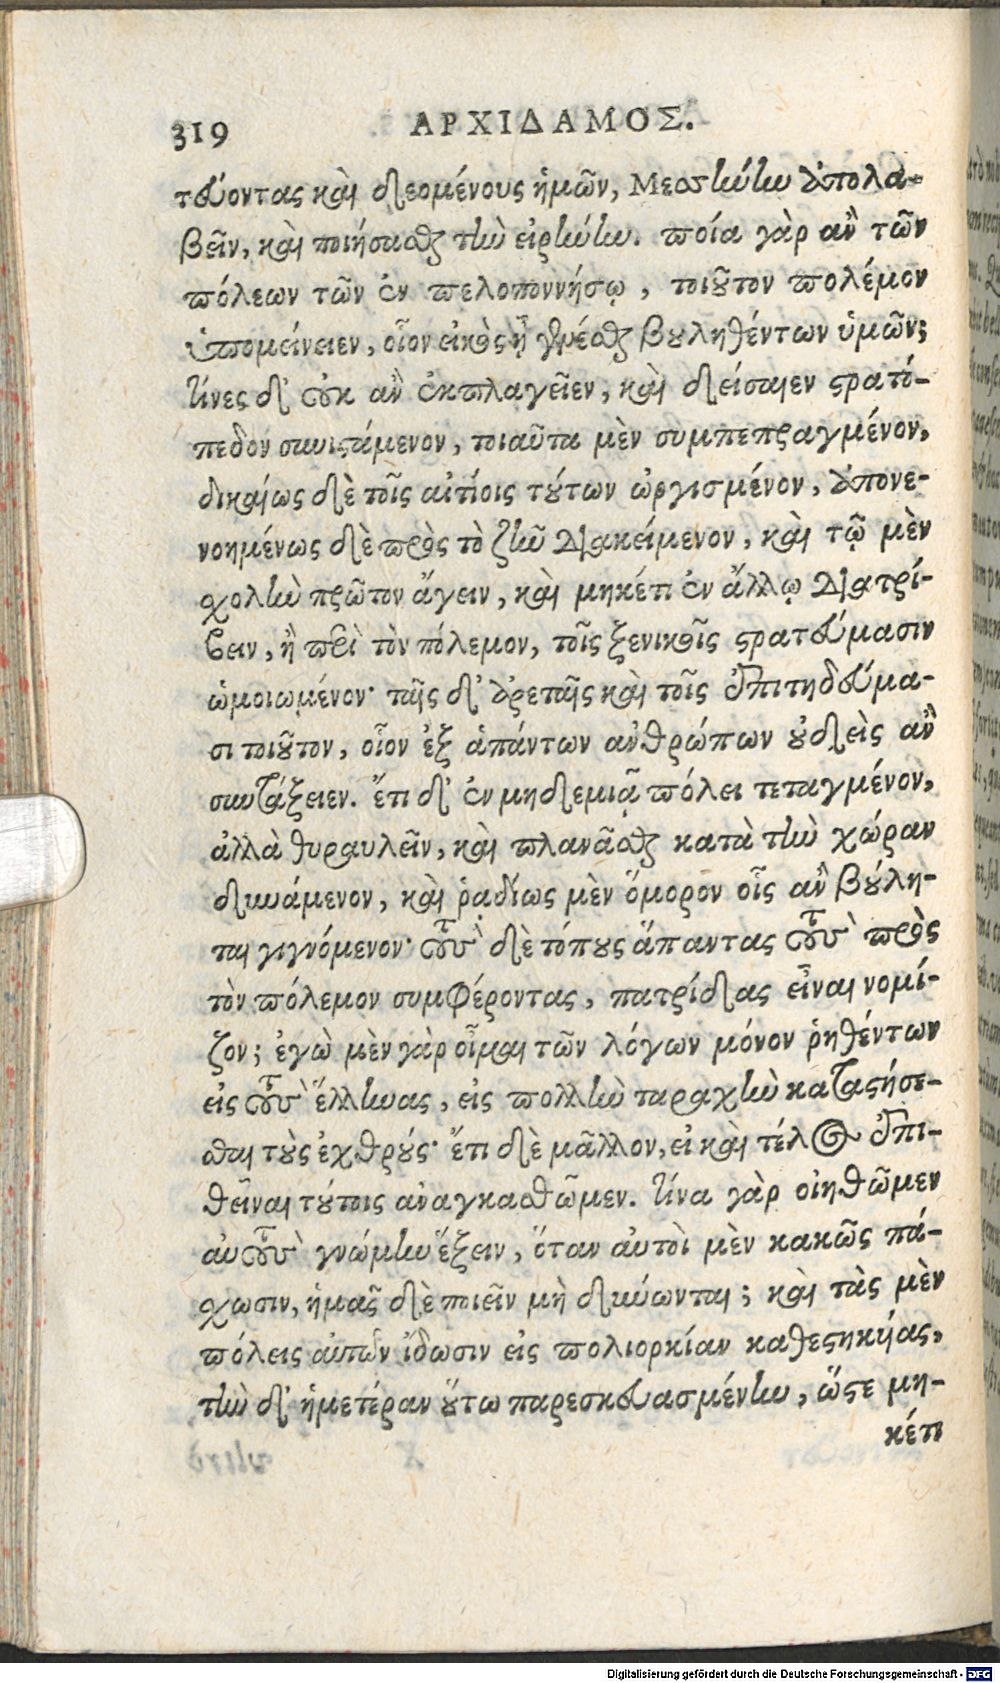 319 ΑΡΧΙΔΑΜΟΣ.
τεύοντας καὶ δεομένους ἡμῶν, Μεσσήνην ἀπολα-
βεῖν, καὶ ποιήσασθαι τὴν εἰρήνην. ποία γὰρ ἂν τῶν
πόλεων τῶν ἐν πελοποννήσῳ, τοιοῦτον πολέμον
ὑπομείνειεν, οἷον εἰκὸς ἦ γενέσθαι βουληθέντων ὑμῶν;
τίνες δ' οὐκ ἂν ἐκπλαγεῖεν, καὶ δείσαιεν στρατό-
πεδον συνιστάμενον, τοιαῦτα μὲν συμπεπραγμένον,
δικαίως δὲ τοῖς αἰτίοις τούτων ὠργισμένον, ἀπονε-
νοημένως δὲ πρὸς τὸ ζῆν διακείμενον, καὶ τῷ μὲν
σχολὴν πρῶτον ἄγειν, καὶ μηκέτι ἐν ἄλλῳ διατρί-
βειν, ἢ περὶ τὸν πόλεμον, τοῖς ξενικοῖς στρατεύμασιν
ὡμοιωμένον· ταῖς δ' ἀρεταῖς καὶ τοῖς ἐπιτηδεύμα-
σι τοιοῦτον, οἷον ἐξ ἁπάντων ἀνθρώπων οὐδεὶς ἂν
συντάξειεν. ἔτι δ' ἐν μηδεμιᾷ πόλει τεταγμένον,
ἀλλὰ θυραυλεῖν, καὶ πλανᾶσθαι κατὰ τὴν χώραν
δυνάμενον, καὶ ῥᾳδίως μὲν ὅμορον οἷς ἂν βούλη-
ται γιγνόμενον· τοὺς δὲ τόπους ἅπαντας τοὺς πρὸς
τὸν πόλεμον συμφέροντας, πατρίδας εἶναι νομί-
ζον; ἐγὼ μὲν γὰρ οἶμαι τῶν λόγων μόνον ῥηθέντων
εἰς τοὺς ἕλληνας, εἰς πολλὴν ταραχὴν καταστήσε-
σθαι τοὺς ἐχθρούς· ἔτι δὲ μᾶλλον, εἰ καὶ τέλος ἐπι-
θεῖναι τούτοις ἀναγκασθῶμεν. τίνα γὰρ οἰηθῶμεν
αὐτοὺς γνώμην ἕξειν, ὅταν αὐτοὶ μὲν κακῶς πά-
σχωσιν, ἡμᾶς δὲ ποιεῖν μὴ δύνωνται; καὶ τὰς μὲν
πόλεις αὐτῶν ἴδωσιν εἰς πολιορκίαν καθεστηκυίας,
τὴν δ' ἡμετέραν οὕτω παρεσκευασμένην, ὥστε μη-
κέτι
Digitalisierung gefördert durch die Deutsche Forschungsgemeinschaft - DFG